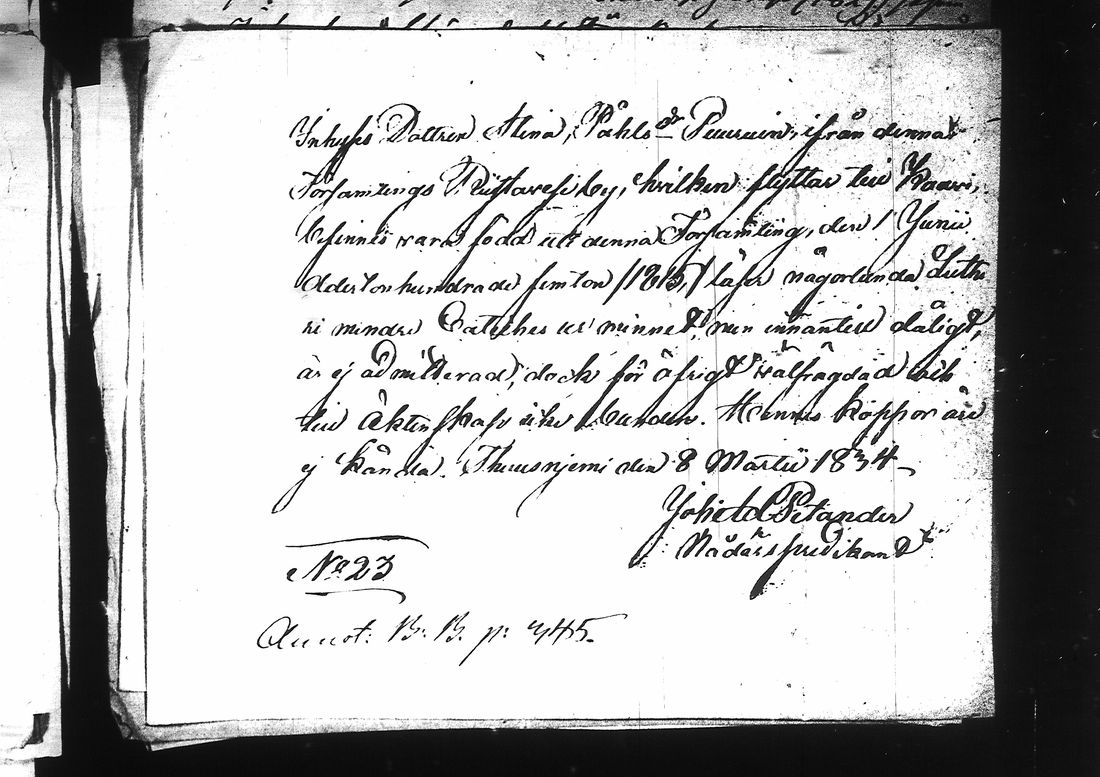 Inhyses Dottren Stina, Påhls dr Puuruin, ifrån denna
Församlings Riittavesi by, hvilken flyttar till Kaavi,
befinnes vara född uti denna Församling, den 1 Junii
Adertonhundrade femton /:1815:/ läser någorlunda Luthe
ri mindre Cateches ur minnet, men innantill dåligt,
är ej admitterad, dock för öfrigt välfrägdad och
till Äktenskap icke bunden. Hennes koppor äro
ej kända. Thuusnjemi den 8 Martii 1834
Petander
Nådårspredikant
No 23
Annot: B. B. p: 345.